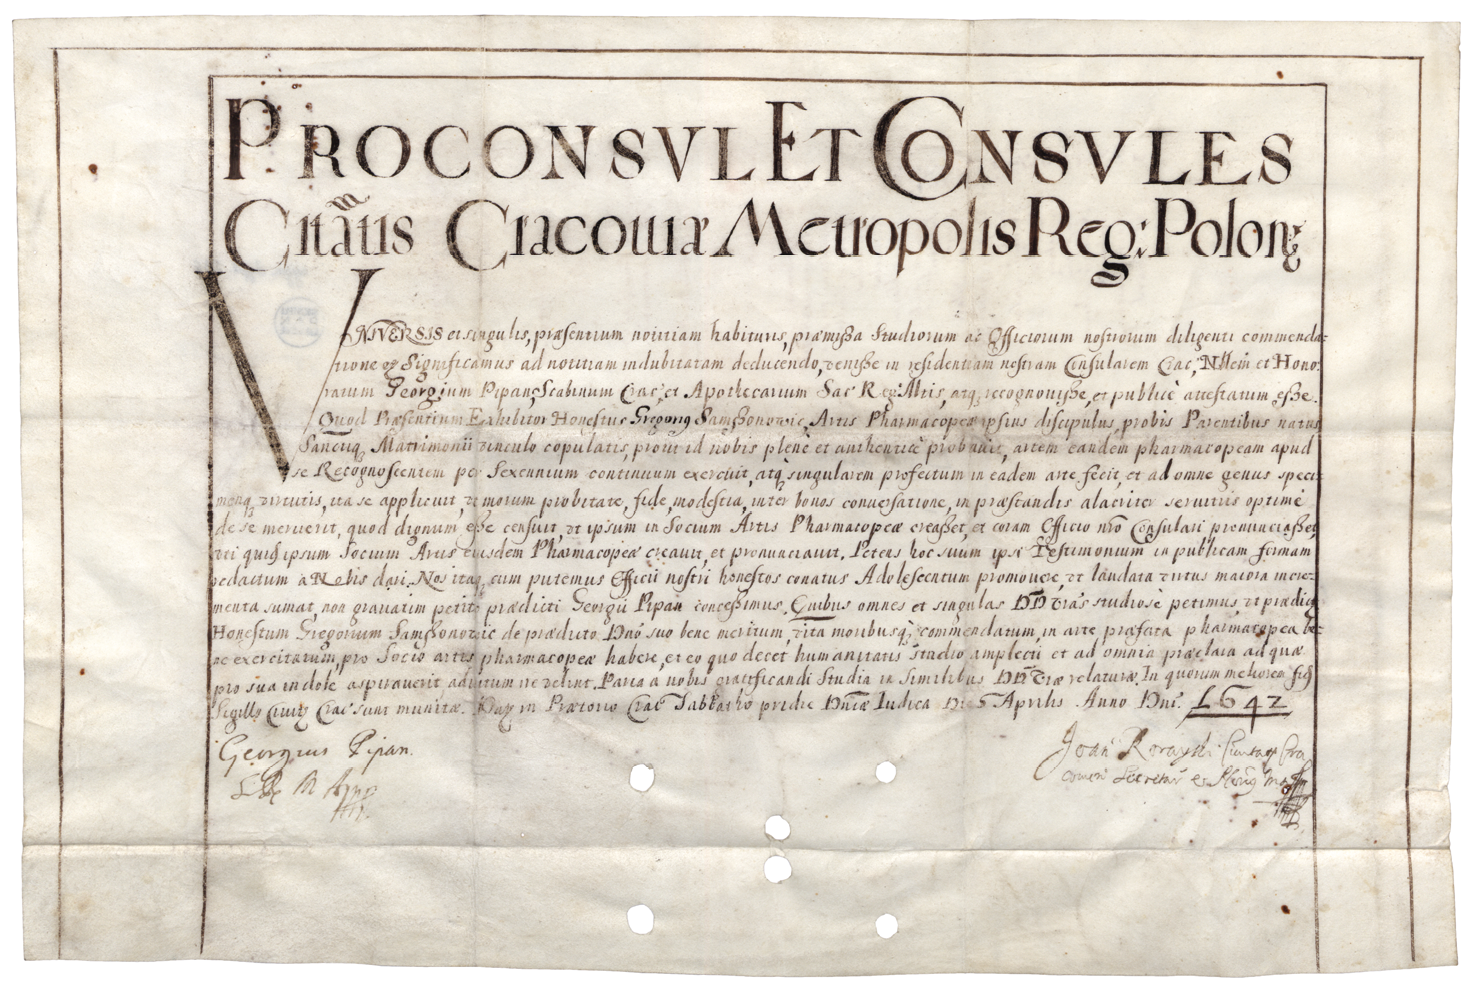 PROCONSVL ET CONSVLES
Citatis Cracouiæ Metropolis Reg: Polon:
VNIVERSIS et singulis, præsentium notitiam habituris, præmissa Studiorum ac Officiorum nostrorum diligenti commenda-
tione Significamus ad notitiam indubitatam deducendo, venisse in residentiam nostram Consularem Crac, et Hono:
ratum Georgium Pipan, Scabinum Crac, et Apothecarium Sac Reg: Mtis, atq recognouisse, et publicè attestatum esse.
Quod Præsentium Exhibitor Honestus Gregorius Samssonowic, Artis Pharmacopeæ ipsius discipulus, probis Parentibus natus
Sanctiq Matrimonii vinculo copulatis, prout id nobis plenè et authenticè probauit, artem eandem pharmacopeam apud
se Recognoscentem per Sexennium continuum exercuit, atq singularem profectum in eadem arte fecit, et ad omne genus speci-
menq virtutis, ita se applicuit, vt morum probitate, fide, modestia, inter bonos conuersatione, in præstandis alacriter seruitiis optimè
de se meruerit, quod dignum esse censuit, vt ipsum in Socium Artis Pharmacopeæ creasset, et coram Officio nro Consulari pronunciasset,
vti quidem ipsum Socium Artis eiusdem Pharmacopeæ creauit, et pronunciauit. Petens hoc suum ipsi Testimonium in publicam formam
redactum à Nobis dari. Nos itaq cum putemus Officii nostri honestos conatus Adolescentum promouere, vt laudata virtus maiora incre-
menta sumat, non grauatim petitis prædicti Georgii Pipan concessimus. Quibus omnes et singulas DD Vras studiosè petimus, vt prædic
Honestum Gregorium Samssonowic de prædicto Dno suo bene meritum, vita moribusq commendatum, in arte præfata pharmacopea be-
ne exercitatum, pro Socio artis pharmacopeæ habere, et eo quo decet humanitatis studio amplecti et ad omnia præclara ad quæ
pro sua indole aspirauerit, aditum ne velint. Paria à nobis gratificandi Studia in similibus DD Vræ relaturæ. In quorum meliorem fid
Sigillo Ciuit Crac sunt munitæ. Dat in Prætorio Crac Sabbatho pridie Dnicæ Iudica Die 5 Aprilis Anno Dni 1642
Georgius Pipan
Joan Ciuitatis Cra
couien Secretari